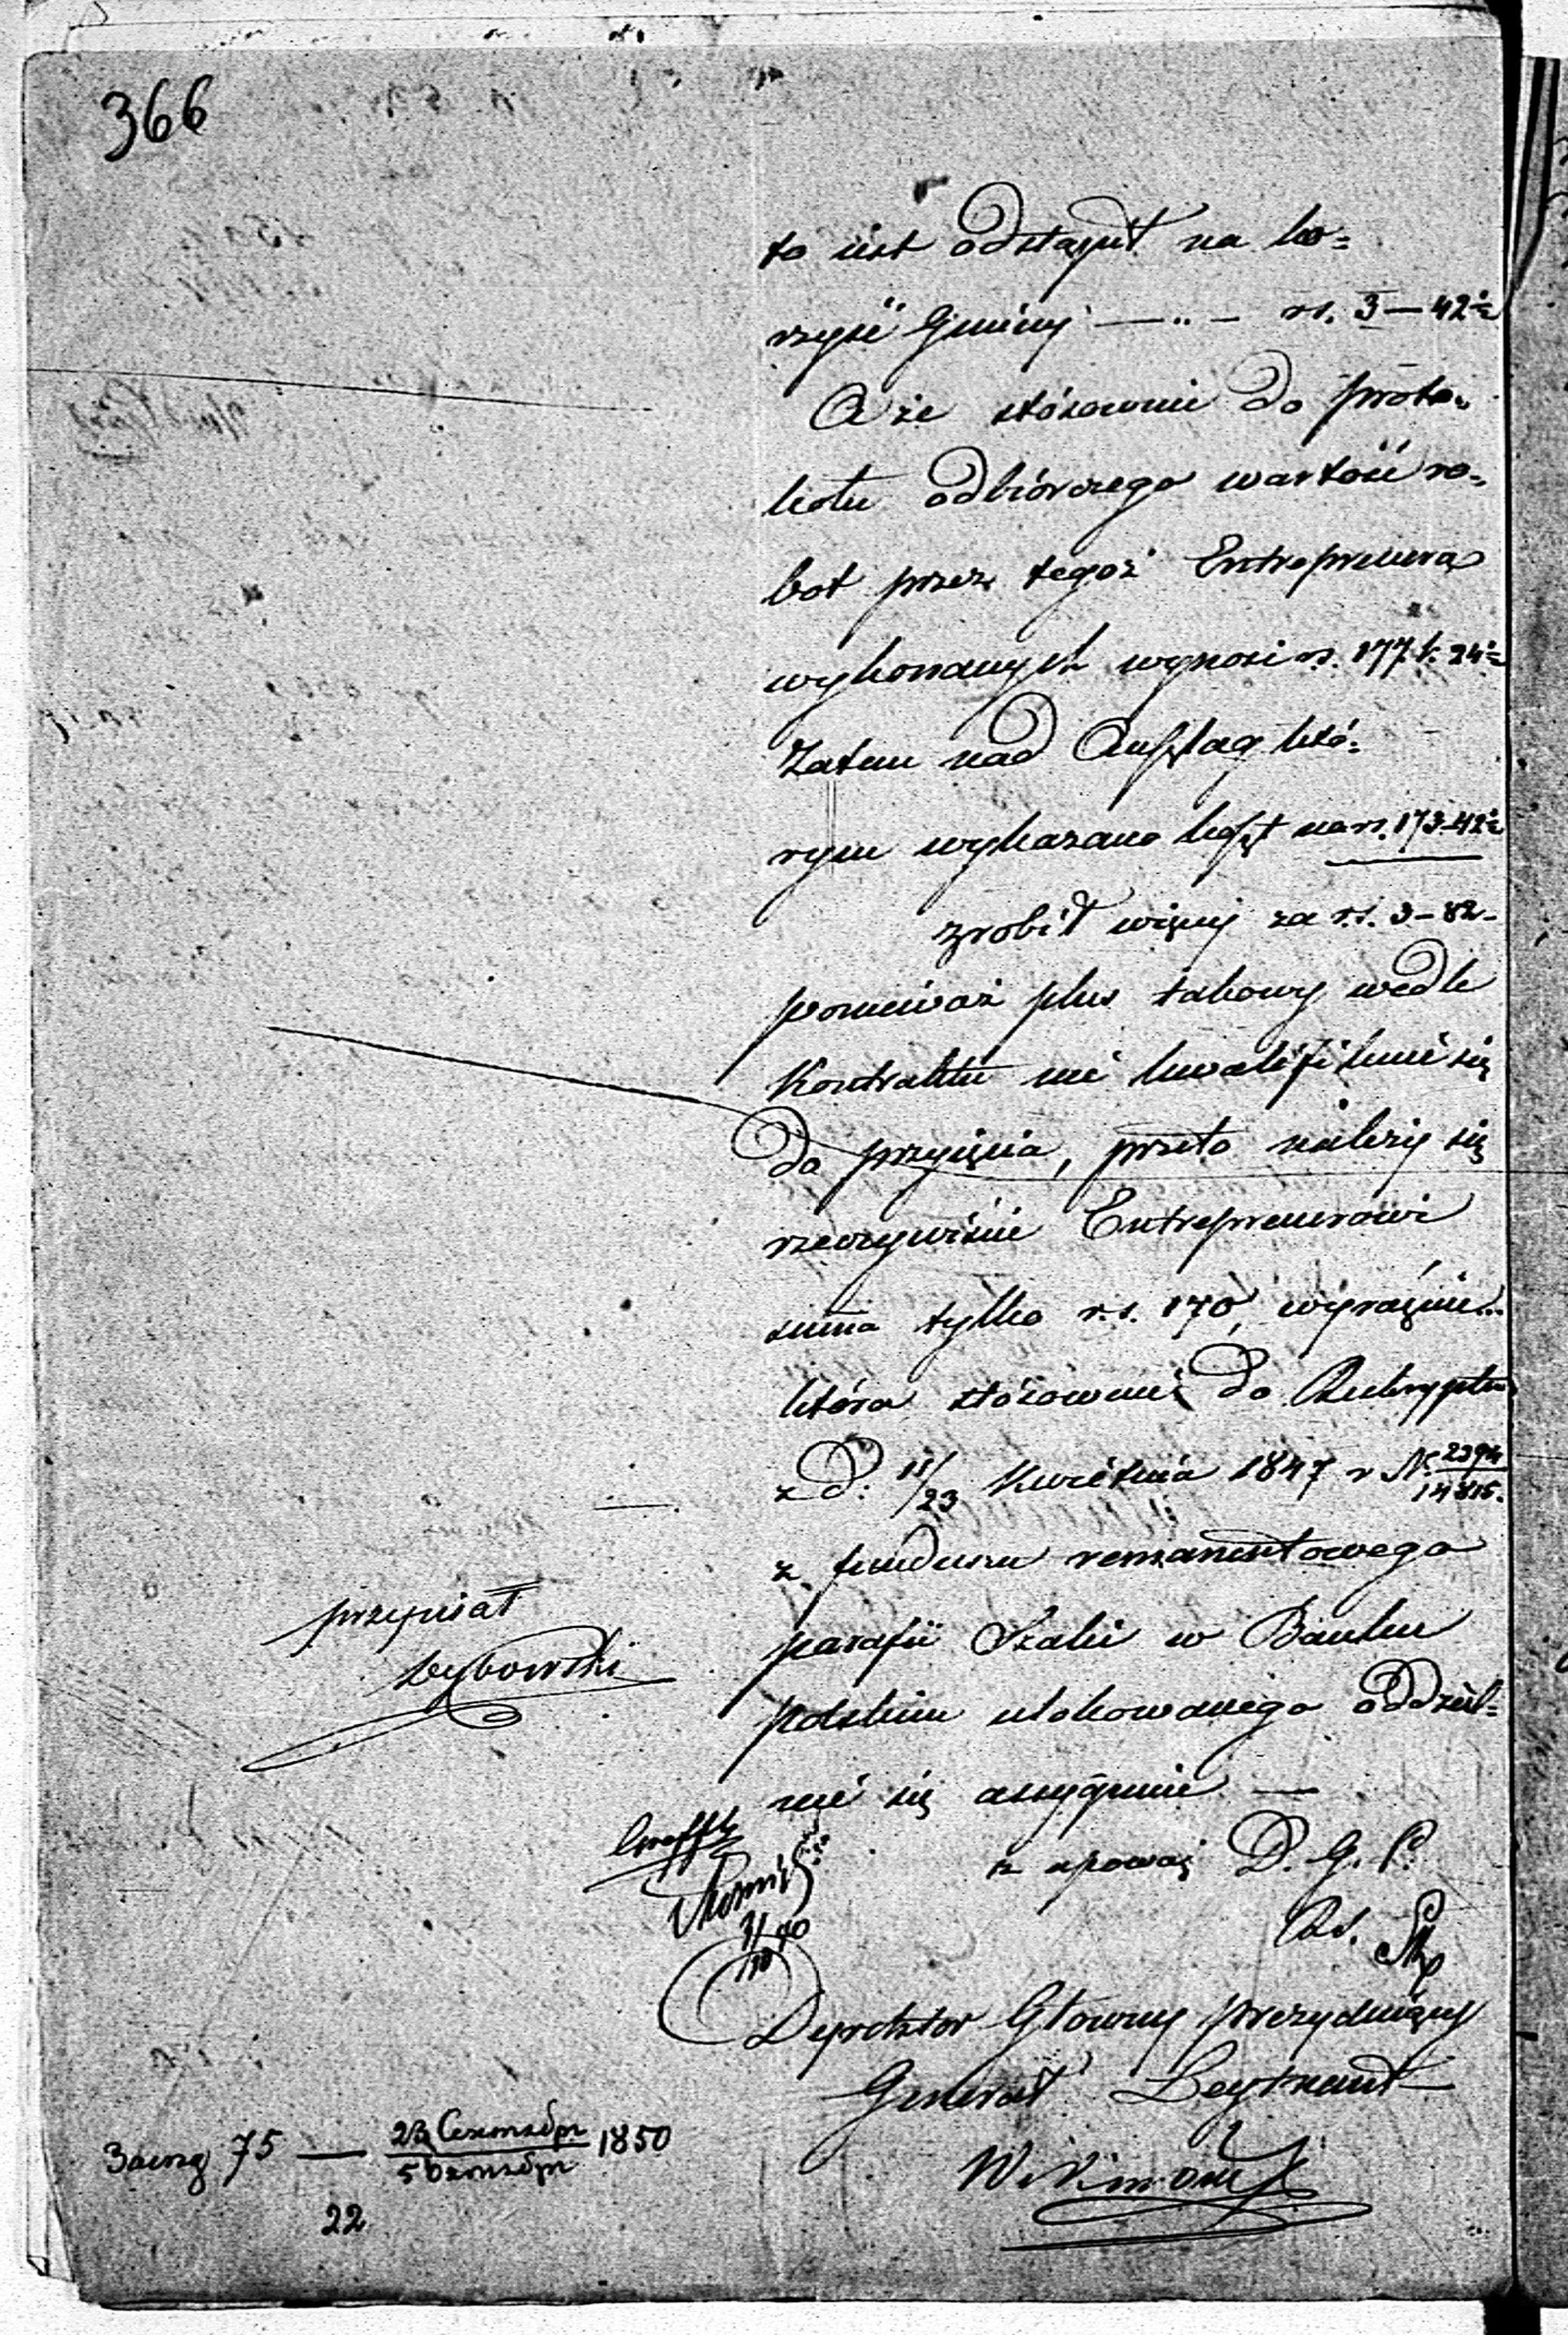 366
to iest odstąpił na ko=
rzyść Gminy — „ — rs. 3 — 42½
A że stósownie do proto=
kołu odbiórczego wartość ro=
bot przez tegoż Entreprenera
wykonanych wynosi rs. 177 k. 24½
Zatem nad Anszlag któ=
rym wykazano koszt na rs. 173-42½
zrobił więcej za r.s. 3-82-
ponieważ plus takowy wedle
Kontraktu nie kwalifikuie się
do przyięcia, przeto należy się
rzeczywiście Entreprenerowi
suma tylko r.s. 170, wyraźnie
która stósownie do Reskryptu
z D. 11/23 Kwietnia 1847 r N. 2394/14815.
z funduszu remanentowego
parafii Skalı w Banku
polskim ulokowanego oddziel=
nie się assygnuie —
przepisał
z upoważ D. G. P.
Rs.
Dyrektor Głowny prezyduiący
Generał Leytnant
Wikinski
75 — 23 Сентября / 5 Октября 1850
22